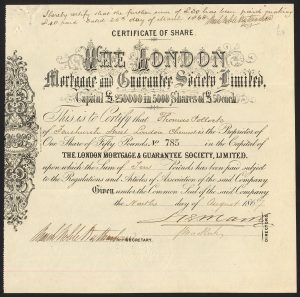 I hereby certify that the further sum of £30 has been paid making
£40 paid Dated 25th day of March 1868
CERTIFICATE OF SHARE
THE LONDON
Mortgage and Guarantee Society Limited,
Capital £250000 in 5000 Shares of £50 each.
This is to Certify that Thomas
of Fenchurch Street London is the Proprietor of
One Share of Fifty Pounds, No. 785 in the Capital of
THE LONDON MORTGAGE & GUARANTEE SOCIETY, LIMITED,
upon which the Sum of Ten Pounds has been paid subject
to the Regulations and Articles of Association of the said Company
Given under the Common Seal of the said Company
the Ninth day of August 186
SECRETARY.
DIRECTORS